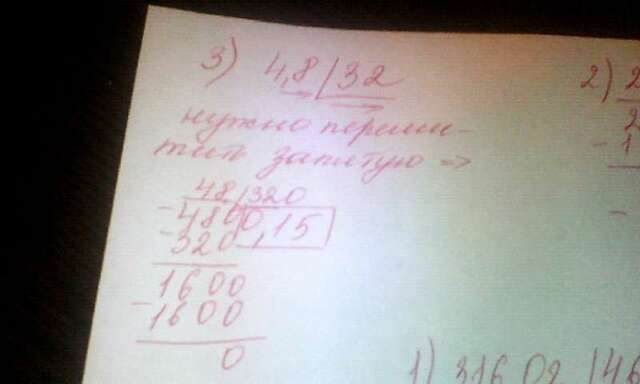 3) 4,8 32
нужно переме-
тить запятую =>
48 320
- 480 0,15
- 320
1600
- 1600
0
2) 2
2
- 1
-
1) 31602 46